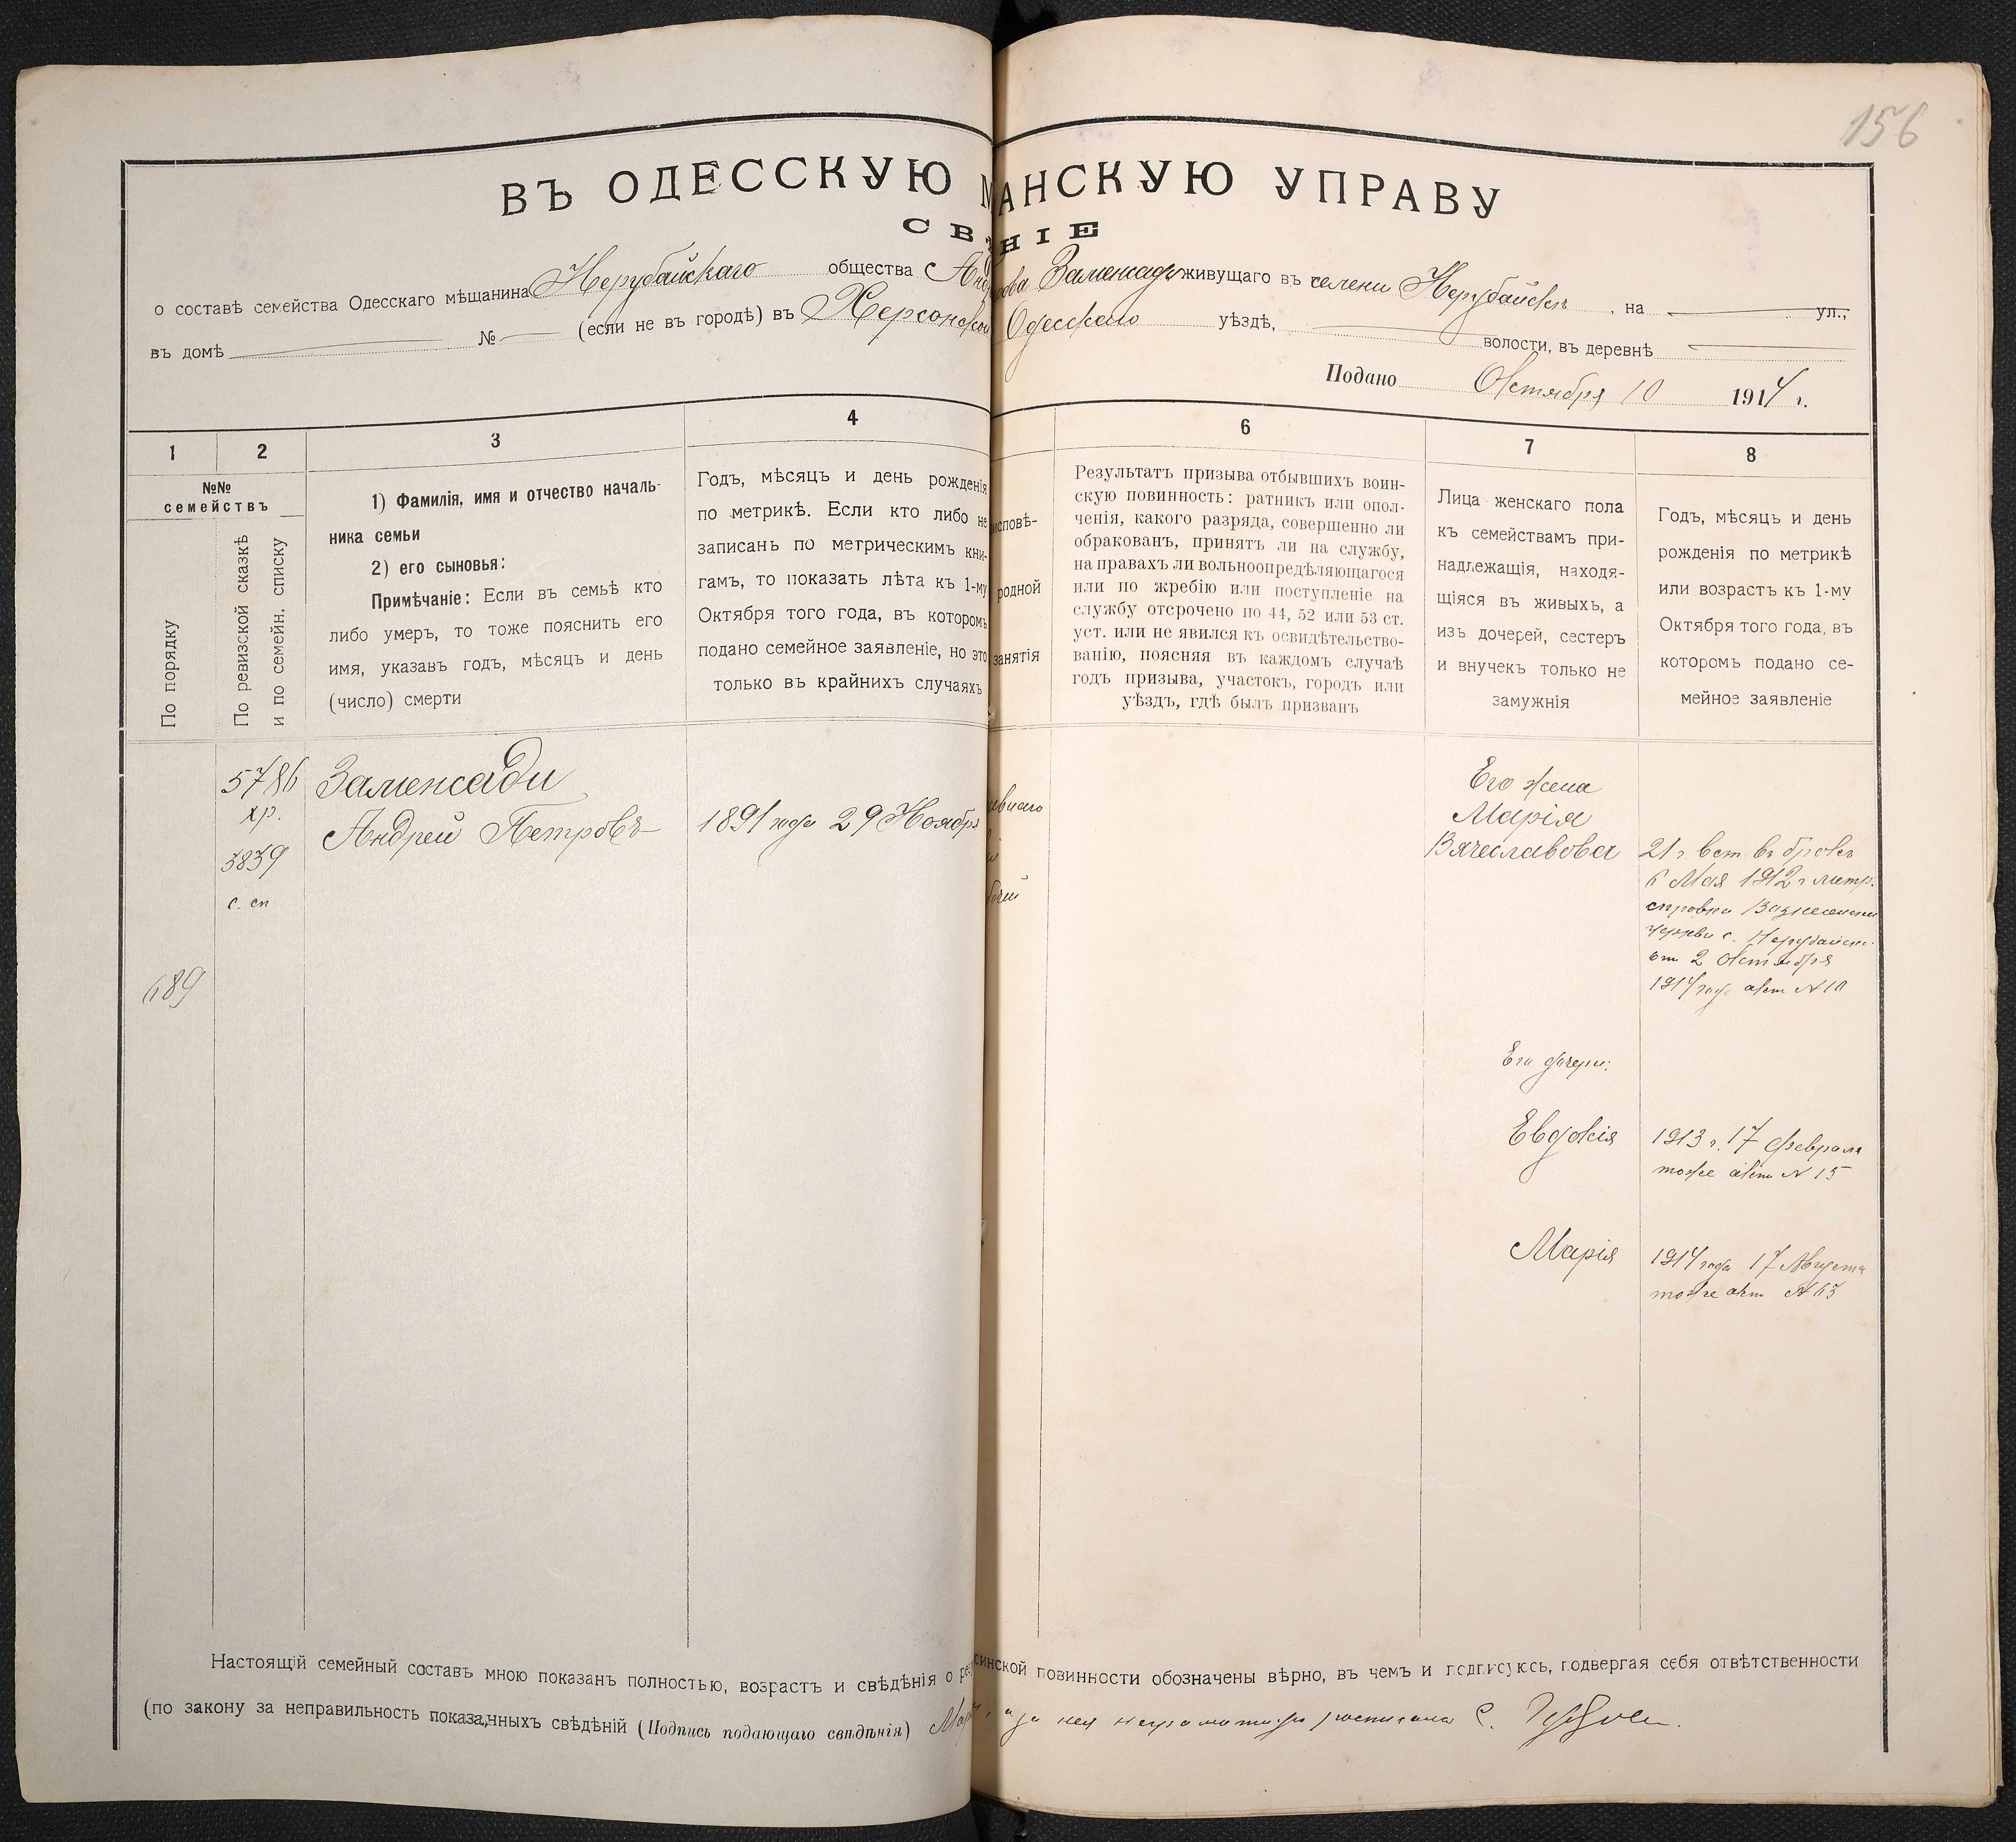 156
ВЪ ОДЕССКУЮ М АНСКУЮ УПРАВУ
СВ НІЕ
о составѣ семейства Одесскаго мѣщанина Нерубайскаго общества Анд рова Заменсади живущаго въ селени Нерубайскъ, на ул.,
въ домѣ № (если не въ городѣ) въ Херсонской Одесскаго уѣздѣ, волости, въ деревнѣ
Подано Октября 10 1914 г.
1 2 3 4 6 7 8
№№
семействъ
По порядку
По ревизской сказкѣ
и по семейн. списку
1) Фамилія, имя и отчество началь-
ника семьи
2) его сыновья:
Примѣчаніе: Если въ семьѣ кто
либо умеръ, то тоже пояснить его
имя, указавъ годъ, мѣсяцъ и день
(число) смерти
Годъ, мѣсяцъ и день рожденія
по метрикѣ. Если кто либо не
записанъ по метрическимъ кни-
гамъ, то показать лѣта къ 1-му
Октября того года, въ которомъ
подано семейное заявленіе, но это
только въ крайнихъ случаяхъ
исповѣ-
родной
занятія
Результатъ призыва отбывшихъ воин-
скую повинность: ратникъ или опол-
ченія, какого разряда, совершенно ли
обракованъ, принятъ ли на службу,
на правахъ ли вольноопредѣляющагося
или по жребію или поступленіе на
службу отсрочено по 44, 52 или 53 ст.
уст. или не явился къ освидѣтельство-
ванію, поясняя въ каждомъ случаѣ
годъ призыва, участокъ, городъ или
уѣздъ, гдѣ былъ призванъ
Лица женскаго пола
къ семействамъ при-
надлежащія, находя-
щіяся въ живыхъ, а
изъ дочерей, сестеръ
и внучекъ только не
замужнія
Годъ, мѣсяцъ и день
рожденія по метрикѣ
или возрастъ къ 1-му
Октября того года, въ
которомъ подано се-
мейное заявленіе
5786
хр.
3839
с. сп
689
Заменсади
Андрей Петровъ
1891 года 29 Ноября
Его жена
Марія
Вячеславова
21 г. вст. въ бракъ
6 Мая 1912 г метр.
справка Вознесенской
церкви с. Нерубайск.
от 2 Октября
1914 года акт № 10
Его дочери:
Евдокія
1913 г. 17 Февраля
тоже актъ № 15
Марія
1914 года 17 Августа
тоже акт № 63
Настоящій семейный составъ мною показанъ полностью, возрастъ и свѣдѣнія о ре инской повинности обозначены вѣрно, въ чемъ и подписуюсь, подвергая себя отвѣтственности
(по закону за неправильность показанныхъ свѣдѣній (Подпись подающаго свѣдѣнія) Мар , а за нея неграмотную росписался С.